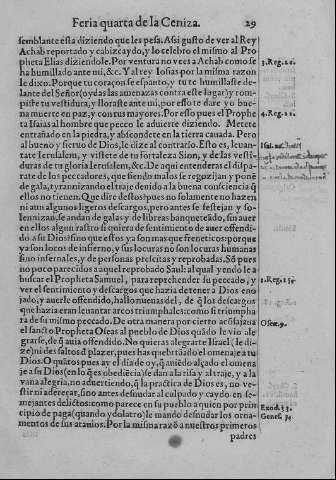 Feria quarta de la Ceniza. 29
semblante està diziendo que les pesa. Assi gusto de ver al Rey
Achab reportado y cabizcaydo, y lo celebro el mismo al Pro
pheta Elias diziendole. Por ventura no vees a Achab como se
ha humillado ante mi, &c. Y al rey Iosias por la misma razon
le dixo. Porque tu coraçon se espanto, y tu te humillaste de-
lante del Señor (oydas las amenazas contra este lugar) y rom-
piste tu vestidura, y lloraste ante mi, por esso te dare yo bue-
na muerte en paz, y con tus mayores. Por esso pues el Prophe
ta Isaias al hombre que peco le aduierte diziendo. Metete
entrañado en la piedra, y abscondete en la tierra cauada. Pero
al bueno y sieruo de Dios, le dize al contrario. Esto es, leuan-
tate Ierusalem, y vistete de tu fortaleza Sion, y de las vesti-
duras de tu gloria Ierusalem, &c. De aqui entenderas el dispa-
rate de los peccadores, que siendo malos se regozijan y ponẽ
de gala, tyrannizando el traje deuido a la buena consciencia q̃
ellos no tienen. Que dire destos? pues no solamente no hazen
ni aun algunos ligeros descargos, pero antes se festejan y so-
lennizan, se andan de galas y de libreas banqueteãdo, sin auer
en ellos algun rastro si quiera de sentimiento de auer offendi-
do a su Dios: sino que estos ya son mas que freneticos: porque
ya son locos de infierno, y sus locuras no son locuras humanas
sino infernales, y de personas prescitas y reprobadas. Sõ pues
no poco parecidos a aquel reprobado Saul: al qual yendo le a
buscar el Propheta Samuel, para reprehender su peccado, y a
ver el sentimiento y descargos que hazia detener a Dios eno
jado, y auerle offendido, hallo nueuas del, de q̃ los descargos
que hazia eran leuantar arcos triumphales: como si triumpha
ra de su mismo peccado. De otra manera por cierto acõsejaua
el sancto Propheta Oseas al pueblo de Dios quãdo le vio ale
grarse, de q̃ auia offendido. No quieras alegrarte Israel (le di-
ze) ni des saltos d plazer, pues has quebrãtado el omenaje a tu
Dios. O quãtos pues ay el dia de oy, q̃ auiẽdo alçado el omena
je a su Dios (en lo q̃ es obediẽcia) se dan a la risa y al traje, y a la
vana alegria, no aduertiendo, q̃ la practica de Dios es, no ve-
stir ni adereçar, sino antes desnudar al culpado y caydo en se-
mejantes delictos: como parece en su pueblo a quien por prin
cipio de paga (quando ydolatro) le mando desnudar los orna-
mentos de sus atauios. Por la misma razõ a nuestros primeros
padres
3. Reg. 21.
4. Reg. 22.
1. Reg. 15.
Osee. 9.
Exod. 33.
Genes. 3.